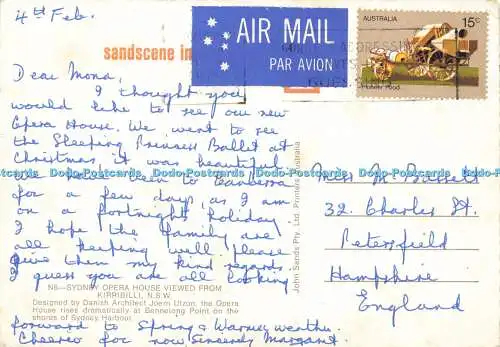 4th Feb.
AIR MAIL
PAR AVION
AUSTRALIA
15c
Pioneer Food
sandscene in
Dear Mona,
I thought you
would like to see our new
Opera House. We went to see
the Sleeping Princess Ballet at
Christmas, it was beautiful
been to Canberra
for a few days, as I am
on a fortnight holiday.
I hope the family are
all keeping well please
give them my kind regards.
I guess you are all looking
forward to Spring & Warmer weather.
Cheerio for now Sincerely Margaret.
N6—SYDNEY OPERA HOUSE VIEWED FROM
KIRRIBILLI, N.S.W.
Designed by Danish Architect Joern Utzon, the Opera
House rises dramatically at Bennelong Point on the
shores of Sydney Harbour.
John Sands Pty. Ltd. Printed in Australia
Miss M Bassett
32. Charles St.
Petersfield
Hampshire
England
Dodo-Postcards Dodo-Postcards Dodo-Postcards Dodo-Postcards Dodo-Postcards Dodo-Postcards